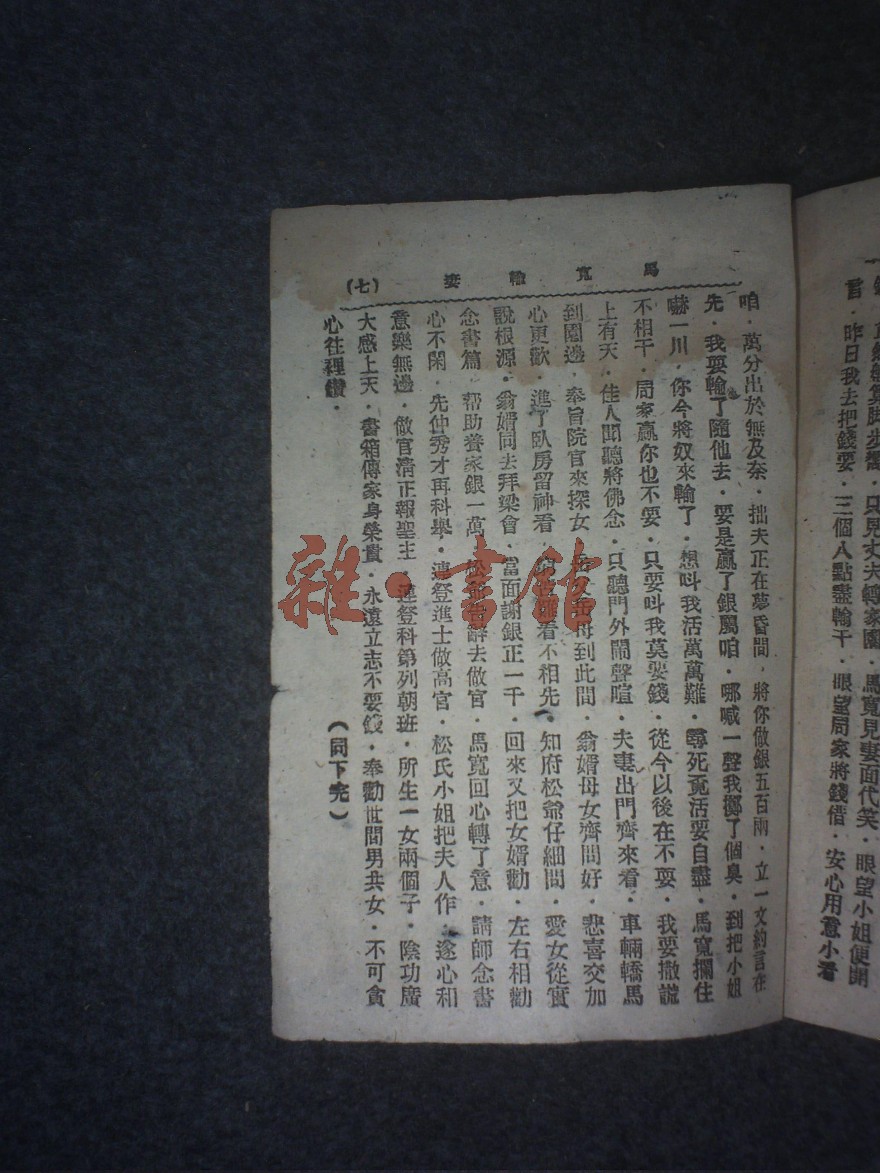 言．昨日我去把錢耍．三個八點盡輸干．眼望周家將錢借．安心用意小看
馬寬輸妻
(七)
咱．萬分出於無及奈．拙夫正在夢昏間．將你做銀五百兩．立一文約言在
先．我耍輸了隨他去．耍是贏了銀屬咱．哪喊一聲我擲了個臭．到把小姐
嚇一川．你今將奴來輸了．想叫我活萬萬難．尋死覓活要自盡．馬寬攔住
不相干．周家贏你也不要．只要叫我莫耍錢．從今以後在不耍．我要撒謊
上有天．佳人聞聽將佛念．只聽門外鬧聲喧．夫妻出門齊來看．車輛轎馬
到園邊．奉旨院官來探女．岳父岳母到此間．翁婿母女齊問好．悲喜交加
心更歡．進了臥房留神看．看不相先．知府松爺仔細問．愛女從實
說根源．翁婿同去拜梁會．當面謝銀正一千．回來又把女婿勸．左右相勸
念書篇．帮助養家銀一萬．松爺告辭去做官．馬寬回心轉了意．請師念書
心不閑．先仲秀才再科舉．連登進士做高官．松氏小姐把夫人作．遂心和
意樂無邊．做官清正報聖主．連登科第列朝班．所生一女兩個子．陰功廣
大感上天．書箱傳家身榮貴．永遠立志不耍錢．奉勸世間男共女．不可貪
心往裡鑽．
(同下完)
雜·書館